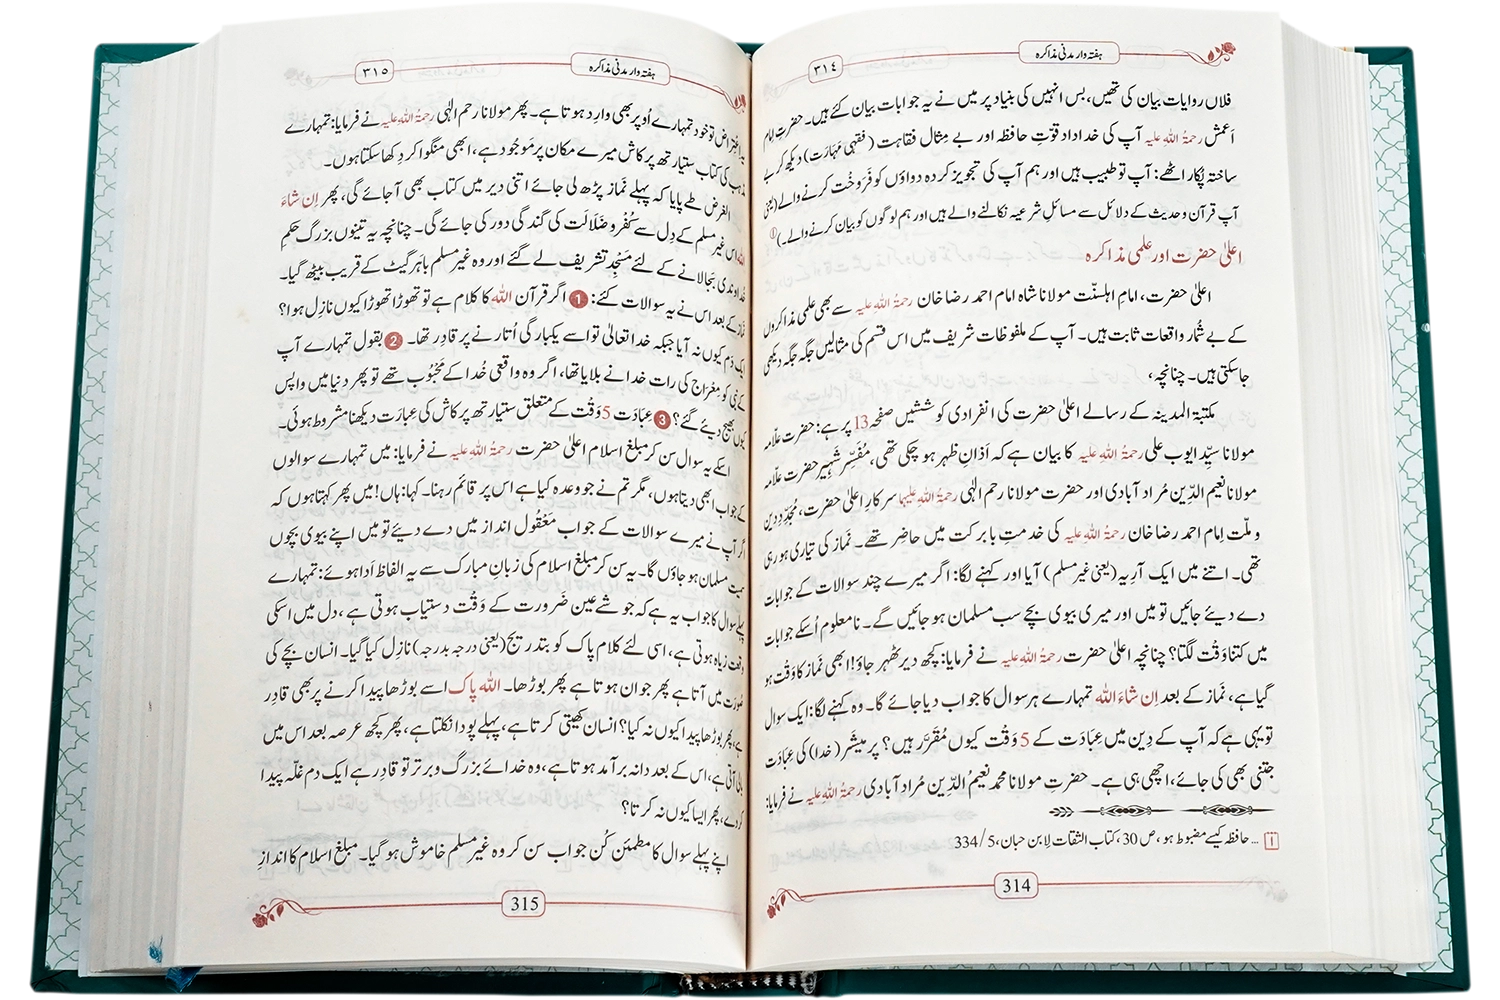 ہفتہ وار مدنی مذاکرہ
٣١٤
فلاں روایات بیان کی تھیں، بس انہیں کی بنیاد پر میں نے یہ جوابات بیان کئے ہیں۔ حضرتِ امام
اَعمش رحمۃُ اللہ علیہ آپ کی خداداد قوتِ حافظہ اور بے مِثال فقاہت (فقہی مَہارَت) دیکھ کر بے
ساختہ پُکار اٹھے: آپ تو طبیب ہیں اور ہم آپ کی تجویز کردہ دواؤں کو فَرَوخْت کرنے والے (یعنی
آپ قرآن و حدیث کے دلائل سے مسائلِ شرعیہ نکالنے والے ہیں اور ہم لوگوں کو بیان کرنے والے۔)
اعلیٰ حضرت اور علمی مذاکرہ
اعلیٰ حضرت، امامِ اہلسنّت مولانا شاہ امام احمد رضا خان رحمۃُ اللہ علیہ سے بھی علمی مذاکروں
کے بے شُمار واقعات ثابت ہیں۔ آپ کے ملفوظات شریف میں اس قسم کی مثالیں جگہ جگہ دیکھی
جاسکتی ہیں۔ چنانچہ،
مکتبۃ المدینہ کے رسالے اعلیٰ حضرت کی انفرادی کوششیں صفحہ 13 پر ہے: حضرت علّامہ
مولانا سیِّد ایوب علی رحمۃُ اللہ علیہ کا بیان ہے کہ اَذانِ ظہر ہو چکی تھی، مُفَسِّرِ شَہِیر حضرت علّامہ
مولانا نعیم الدِّین مُراد آبادی اور حضرت مولانا رحم الٰہی رحمۃُ اللہ علیہما سرکارِ اعلیٰ حضرت، مُجَدِّدِ دین
و ملّت اِمام احمد رضا خان رحمۃُ اللہ علیہ کی خدمتِ بابرکت میں حاضِر تھے۔ نَماز کی تیاری ہو رہی
تھی۔ اتنے میں ایک آریہ (یعنی غیر مسلم) آیا اور کہنے لگا: اگر میرے چند سوالات کے جوابات
دے دیئے جائیں تو میں اور میری بیوی بچے سب مسلمان ہو جائیں گے۔ نامعلوم اُسکے جوابات
میں کتنا وَقْت لگتا؟ چنانچہ اعلیٰ حضرت رحمۃُ اللہ علیہ نے فرمایا: کچھ دیر ٹھہر جاؤ! ابھی نَماز کا وَقْت ہو
گیا ہے، نَماز کے بعد اِن شاءَ اللہ تمہارے ہر سوال کا جواب دیا جائے گا۔ وہ کہنے لگا: ایک سوال
تو یہی ہے کہ آپ کے دِین میں عِبادَت کے 5 وَقْت کیوں مُقَرَّر ہیں؟ پرمیشَر (خدا) کی عِبادَت
جتنی بھی کی جائے، اچھی ہی ہے۔ حضرتِ مولانا محمد نعیمُ الدِّین مُراد آبادی رحمۃُ اللہ علیہ نے فرمایا:
۱ ... حافظہ کیسے مضبوط ہو، ص 30، کتاب الثقات لابن حبان، 5/334
314
ہفتہ وار مدنی مذاکرہ
٣١٥
یہ اِعْتِراض تو خود تمہارے اُوپر بھی وارِد ہوتا ہے۔ پھر مولانا رحم الٰہی رحمۃُ اللہ علیہ نے فرمایا: تمہارے
مذہب کی کتاب ستیارتھ پرکاش میرے مکان پر مَوجُود ہے، ابھی منگوا کر دِکھا سکتا ہوں۔
الغرض طے پایا کہ پہلے نَماز پڑھ لی جائے اتنی دیر میں کتاب بھی آجائے گی، پھر اِن شاءَ
اللہ اس غیر مسلم کے دِل سے کُفْر و ضَلَالَت کی گندگی دور کی جائے گی۔ چنانچہ یہ تینوں بزرگ حَکمِ
خداوندی بَجا لانے کے لئے مَسْجِد تشریف لے گئے اور وہ غیر مسلم باہَر گیٹ کے قریب بیٹھ گیا۔
نماز کے بعد اس نے یہ سوالات کئے: 1 اگر قرآن اللہ کا کلام ہے تو تھوڑا تھوڑا کیوں نازِل ہوا؟
ایک دم کیوں نہ آیا جبکہ خدا تعالیٰ تو اسے یکبارگی اُتارنے پر قادِر تھا۔ 2 بقول تمہارے آپ
کے نبی کو مِعْرَاج کی رات خدا نے بلایا تھا، اگر وہ واقعی خُدا کے مَحْبُوب تھے تو پھر دنیا میں واپس
کیوں بھیج دیئے گئے؟ 3 عِبَادَت 5 وَقْت کے متعلق ستیارتھ پرکاش کی عِبارَت دیکھنا مشروط ہوئی۔
اسکے یہ سوال سن کر مبلغِ اسلام اعلیٰ حضرت رحمۃُ اللہ علیہ نے فرمایا: میں تمہارے سوالوں
کے جواب ابھی دیتا ہوں، مگر تم نے جو وعدہ کیا ہے اس پر قائم رہنا۔ کہا: ہاں! میں پھر کہتا ہوں کہ
اگر آپ نے میرے سوالات کے جواب مَعْقُول انداز میں دے دیئے تو میں اپنے بیوی بچوں
سمیت مسلمان ہو جاؤں گا۔ یہ سن کر مبلغِ اسلام کی زبانِ مبارک سے یہ الفاظ اَدا ہوئے: تمہارے
پہلے سوال کا جواب یہ ہے کہ جو شے عین ضَرورت کے وَقْت دستیاب ہوتی ہے، دل میں اسکی
وقعت زیادہ ہوتی ہے، اسی لئے کلام پاک کو بتدریج (یعنی درجہ بدرجہ) نازِل کیا گیا۔ انسان بچے کی
صُورَت میں آتا ہے پھر جوان ہوتا ہے پھر بوڑھا۔ اللہ پاک اسے بوڑھا پیدا کرنے پر بھی قادِر
ہے، پھر بوڑھا پیدا کیوں نہ کیا؟ انسان کھیتی کرتا ہے، پہلے پودا نکلتا ہے، پھر کچھ عرصہ بعد اس میں
بالی آتی ہے، اس کے بعد دانہ برآمد ہوتا ہے، وہ خدائے بزرگ و برتر تو قادِر ہے ایک دم غلّہ پیدا
کر دے، پھر ایسا کیوں نہ کرتا؟
اپنے پہلے سوال کا مطمئن کُن جواب سن کر وہ غیر مسلم خاموش ہو گیا۔ مبلغِ اسلام کا اندازِ
315